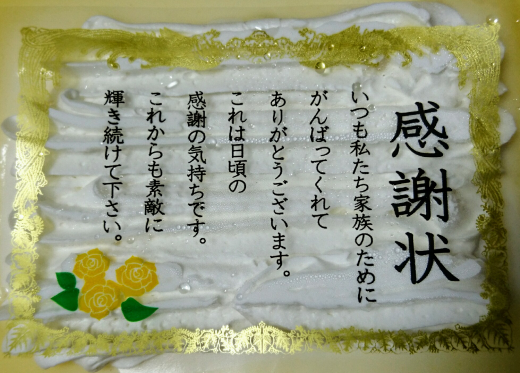 感謝状
いつも私たち家族のために
がんばってくれて
ありがとうございます。
これは日頃の
感謝の気持ちです。
これからも素敵に
輝き続けて下さい。